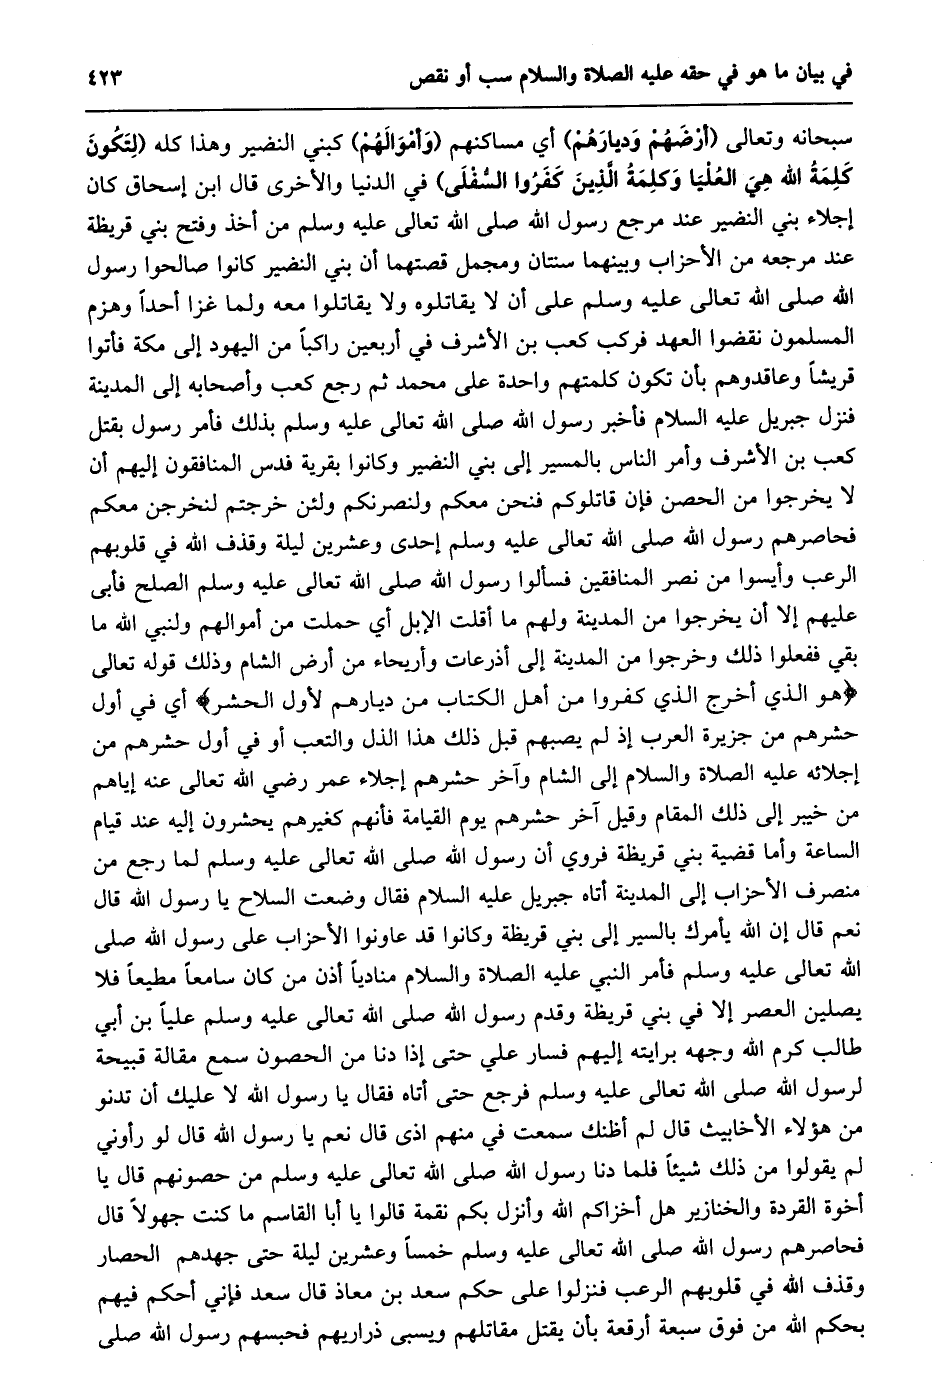 في بيان ما هو في حقه عليه الصلاة والسلام سب أو نقص ٤٢٣
سبحانه وتعالى (أَرْضَهُمْ وَدِيارَهُمْ) أي مساكنهم (وَأَمْوَالَهُمْ) كبني النضير وهذا كله (لِتَكُونَ
كَلِمَةُ الله هِيَ العُلْيَا وَكَلِمَةُ الَّذِينَ كَفَرُوا السُّفْلَى) في الدنيا والأخرى قال ابن إسحاق كان
إجلاء بني النضير عند مرجع رسول الله صلى الله تعالى عليه وسلم من أخذ وفتح بني قريظة
عند مرجعه من الأحزاب وبينهما سنتان ومجمل قصتهما أن بني النضير كانوا صالحوا رسول
الله صلى الله تعالى عليه وسلم على أن لا يقاتلوه ولا يقاتلوا معه ولما غزا أحداً وهزم
المسلمون نقضوا العهد فركب كعب بن الأشرف في أربعين راكباً من اليهود إلى مكة فأتوا
قريشاً وعاقدوهم بأن تكون كلمتهم واحدة على محمد ثم رجع كعب وأصحابه إلى المدينة
فنزل جبريل عليه السلام فأخبر رسول الله صلى الله تعالى عليه وسلم بذلك فأمر رسول بقتل
كعب بن الأشرف وأمر الناس بالمسير إلى بني النضير وكانوا بقرية فدس المنافقون إليهم أن
لا يخرجوا من الحصن فإن قاتلوكم فنحن معكم ولنصرنكم ولئن خرجتم لنخرجن معكم
فحاصرهم رسول الله صلى الله تعالى عليه وسلم إحدى وعشرين ليلة وقذف الله في قلوبهم
الرعب وأيسوا من نصر المنافقين فسألوا رسول الله صلى الله تعالى عليه وسلم الصلح فأبى
عليهم إلا أن يخرجوا من المدينة ولهم ما أقلت الإبل أي حملت من أموالهم ولنبي الله ما
بقي ففعلوا ذلك وخرجوا من المدينة إلى أذرعات وأريحاء من أرض الشام وذلك قوله تعالى
﴿هو الذي أخرج الذي كفروا من أهل الكتاب من ديارهم لأول الحشر﴾ أي في أول
حشرهم من جزيرة العرب إذ لم يصبهم قبل ذلك هذا الذل والتعب أو في أول حشرهم من
إجلائه عليه الصلاة والسلام إلى الشام وآخر حشرهم إجلاء عمر رضي الله تعالى عنه إياهم
من خيبر إلى ذلك المقام وقيل آخر حشرهم يوم القيامة فأنهم كغيرهم يحشرون إليه عند قيام
الساعة وأما قضية بني قريظة فروي أن رسول الله صلى الله تعالى عليه وسلم لما رجع من
منصرف الأحزاب إلى المدينة أتاه جبريل عليه السلام فقال وضعت السلاح يا رسول الله قال
نعم قال إن الله يأمرك بالسير إلى بني قريظة وكانوا قد عاونوا الأحزاب على رسول الله صلى
الله تعالى عليه وسلم فأمر النبي عليه الصلاة والسلام منادياً أذن من كان سامعاً مطيعاً فلا
يصلين العصر إلا في بني قريظة وقدم رسول الله صلى الله تعالى عليه وسلم علياً بن أبي
طالب كرم الله وجهه برايته إليهم فسار علي حتى إذا دنا من الحصون سمع مقالة قبيحة
لرسول الله صلى الله تعالى عليه وسلم فرجع حتى أتاه فقال يا رسول الله لا عليك أن تدنو
من هؤلاء الأخابيث قال لم أظنك سمعت في منهم اذى قال نعم يا رسول الله قال لو رأوني
لم يقولوا من ذلك شيئاً فلما دنا رسول الله صلى الله تعالى عليه وسلم من حصونهم قال يا
أخوة القردة والخنازير هل أخزاكم الله وأنزل بكم نقمة قالوا يا أبا القاسم ما كنت جهولاً قال
فحاصرهم رسول الله صلى الله تعالى عليه وسلم خمساً وعشرين ليلة حتى جهدهم الحصار
وقذف الله في قلوبهم الرعب فنزلوا على حكم سعد بن معاذ قال سعد فإني أحكم فيهم
بحكم الله من فوق سبعة أرقعة بأن يقتل مقاتلهم ويسبى ذراريهم فحبسهم رسول الله صلى